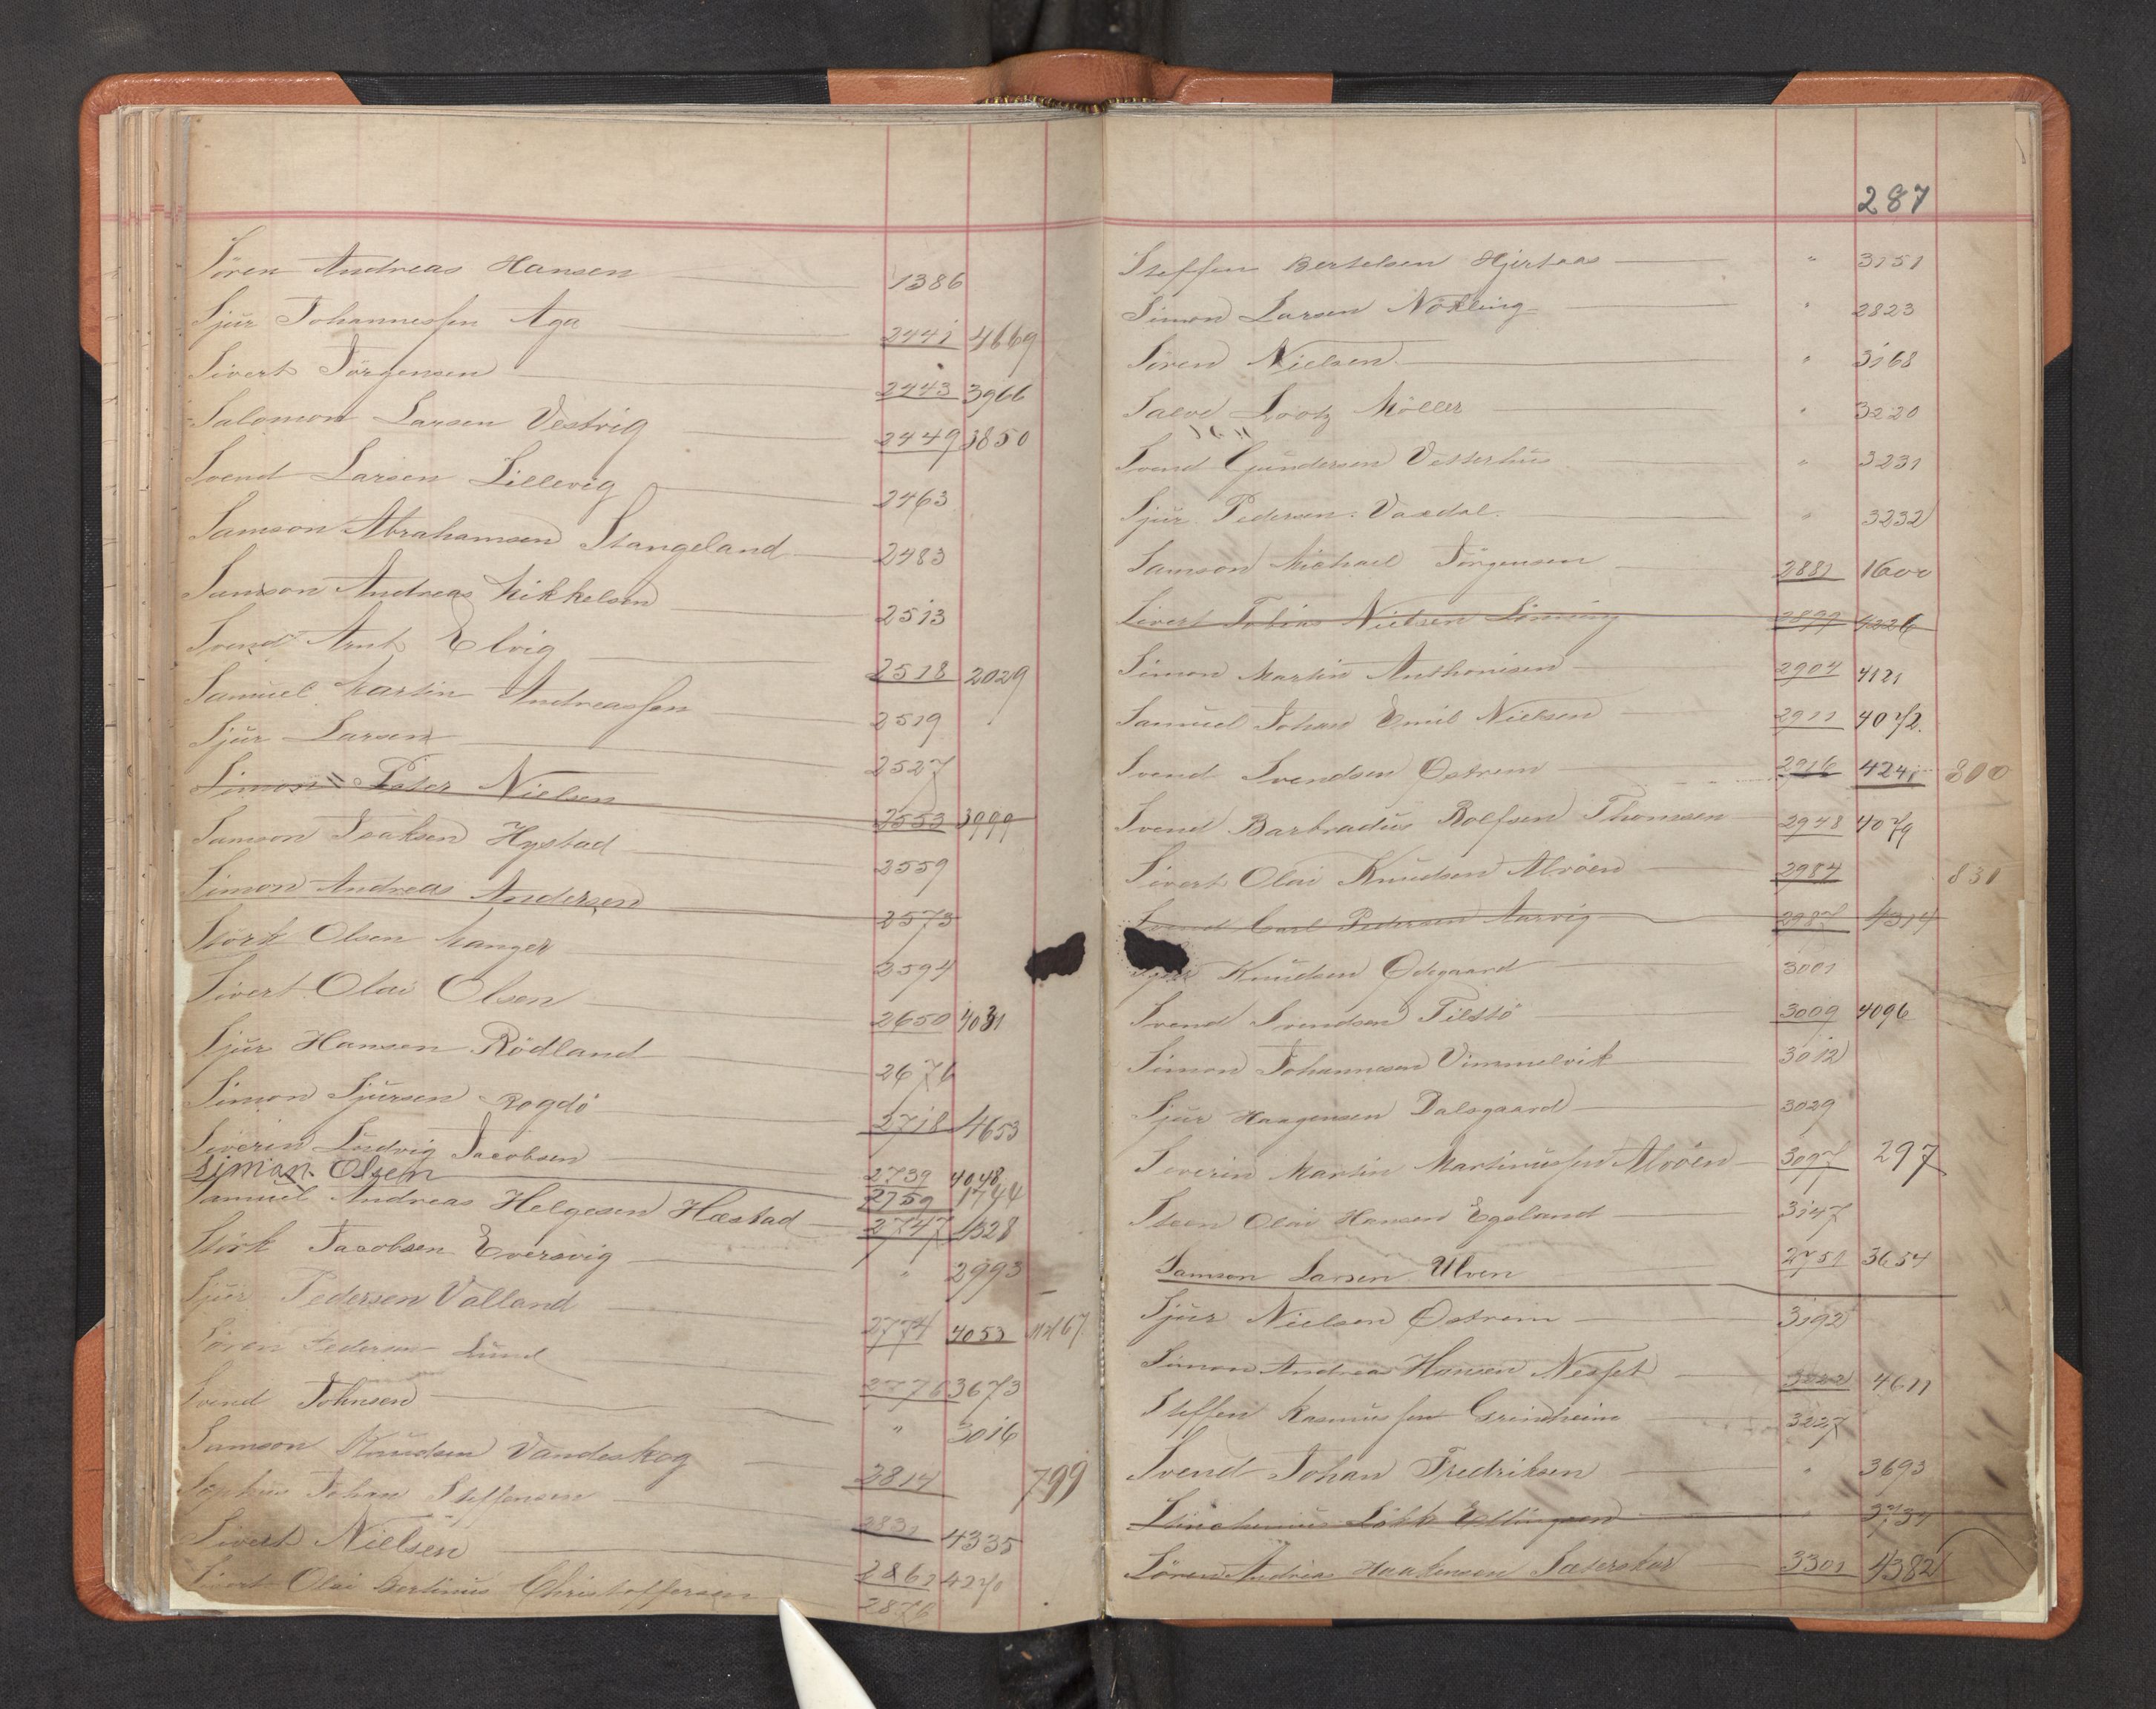 Sören Andreas Hansen 1386
Sjur Johannessen Aga 2441 4669
Sivert Jörgensen 2443 3966
Salomon Larsen Vestvig 2449 3850
Svend Larsen Lillevig 2463
Samson Abrahamsen Stangeland 2483
Samson Andreas Mikkelsen 2513
Svend Arnt Elvig 2518 2029
Samuel Martin Andreassen 2519
Sjur Larsen 2527
Simon Peter Nielsen 2553 3999
Samson Isaksen Hystad 2559
Simon Andreas Andersen 2573
Störk Olsen Manger 2594
Sivert Olai Olsen 2650 4031
Sjur Hansen Rödland 2676
Simon Sjursen Rogdö 2718 4653
Severin Ludvig Jacobsen 2739 4048
Siman Olsen 2759 1744
Samuel Andreas Helgesen Hæstad 2747 1328
Störk Jacobsen Eversvig " 2993
Sjur Pedersen Valland 2774 4053
Sören Pedersen Lund 2776 3673
Svend Johnsen " 3016
Samson Knudsen Vandeskog 2814 799
Sophus Johan Steffensen 2831 4335
Sivert Nielsen 2862 4270
Sivert Olai Bertinus Christoffersen 2876
287
Steffen Bertelsen Hjertaas " 3151
Simon Larsen Nökling " 2823
Sören Nielsen " 3168
Salve Lootz Möller " 3220
Svend Gundersen Vesterhus " 3231
Sjur Pedersen Vaxdal " 3232
Samson Michael Jörgensen 2881 1600
Sivert Tobias Nielsen 2899 4226
Simon Martin Anthonisen 2904 4121
Samuel Johan Emil Nielsen 2911 4072
Svend Svendsen Østrem 2916 4241 800
Svend Barbradus Rolfsen Thomsen 2948 4079
Sivert Olai Knudsen Alvöen 2984 831
Svend Carl Pedersen Aarvig 2987 4314
Knudsen Ødegaard 3001
Svend Svendsen Tilstö 3009 4096
Simon Johannesen Vimmelvik 3012
Sjur Haagensen Dalsgaard 3029
Severin Martin Martinussen Alvöen 3097 297
Steen Olai Hansen Egeland 3147
Samson Larsen Ulven 2751 3654
Sjur Nielsen Østrem 3192
Simon Andreas Hansen Nesset 3222 4611
Steffen Rasmussen Greindheim 3227
Svend Johan Fredriksen " 3693
Ellingsen " 3734
Sören Andreas Haakensen Sæterskar 3301 4382